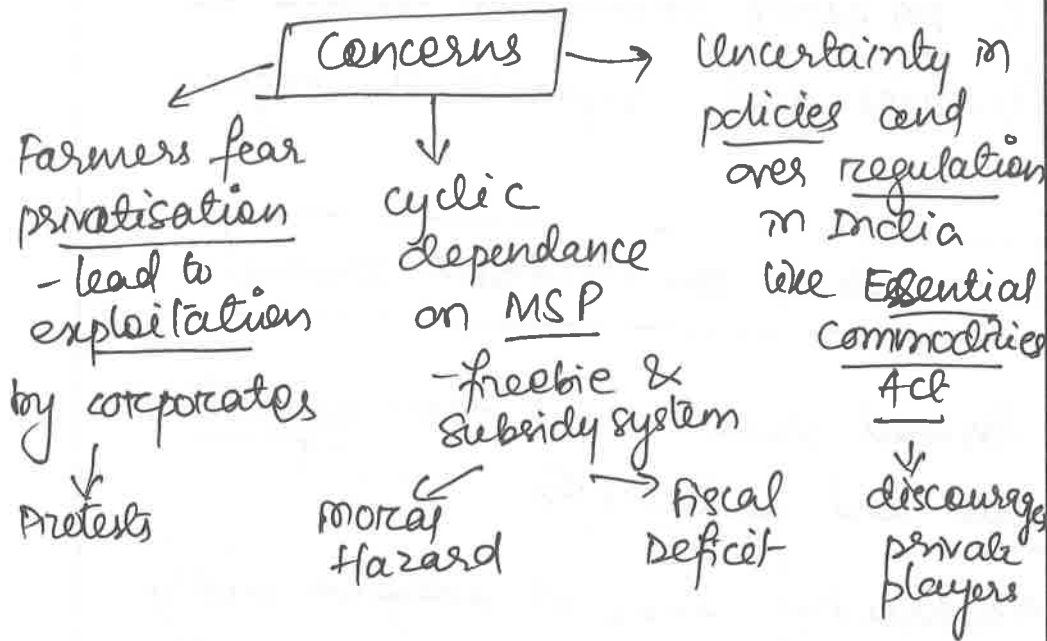 Concerns
Farmers fear
privatisation
- lead to
exploitation
by corporates
Protests
cyclic
dependance
on MSP
- freebie &
subsidy system
Moral
Hazard
Fiscal
Deficit
Uncertainty in
policies and
over regulation
in India
like Essential
Commodities
Act
discourages
private
players